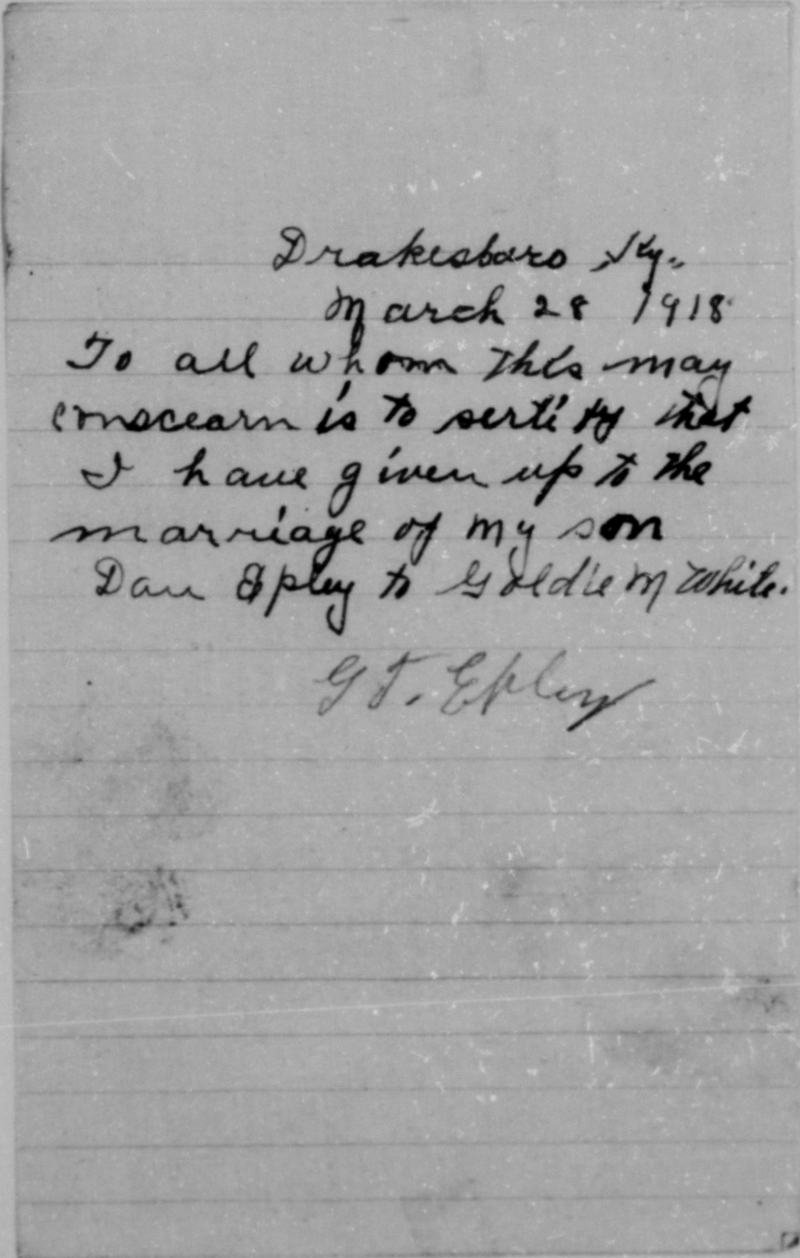 Drakesboro Ky.
March 28 1918
To all whom this may
conscearn is to sertify that
I have given up to the
marriage of my son
Dan Epley to Goldie M White.
G T. Epley